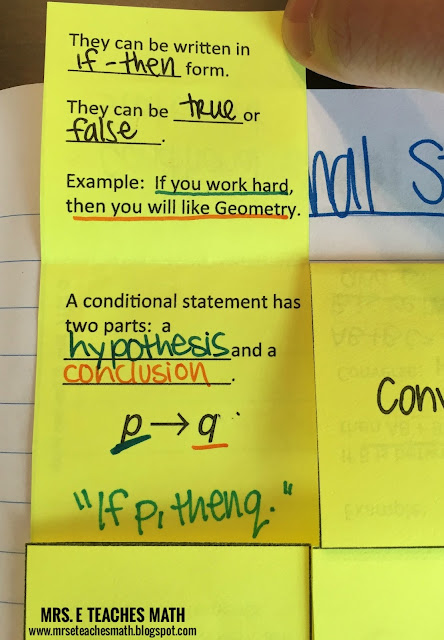 They can be written in
if-then form.
They can be true or
false.
Example: If you work hard,
then you will like Geometry.
nal S
A conditional statement has
two parts: a
hypothesis and a
conclusion.
p → q
"If p, then q."
Conv
MRS. E TEACHES MATH
www.mrseteachesmath.blogspot.com